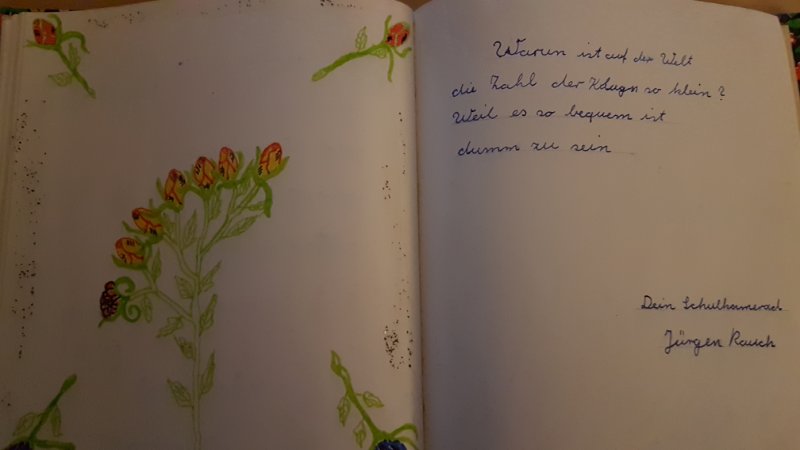 Warum ist auf der Welt
die Zahl der Klugn so klein?
Weil es so bequem ist
dumm zu sein
Dein Schulkamerad
Jürgen Rausch